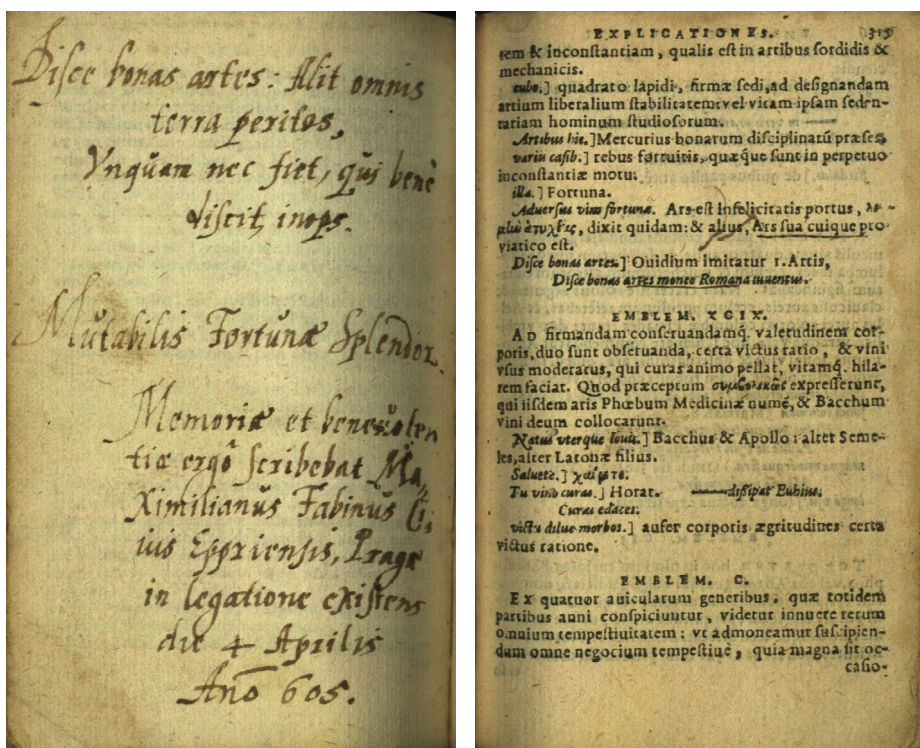 Disce bonas artes: Alit omnis
terra peritos,
Vnquam nec fiet, qui benè
discit, inops.
Mutabilis Fortunæ Splendor.
Memoriæ et beneuolen
tiæ ergô scribebat Ma,
ximilianus Fabinus Ci,
uis Eppriensis, Pragæ
in legatione existens
die 4 Aprilis
Anō 605.
EXPLICATIONES. 319
tem & inconſtantiam, qualis eſt in artibus ſordidis &
mechanicis.
cubo.] quadrato lapidi, firmæ ſedi, ad deſignandam
artium liberalium ſtabilitatem: vel vitam ipſam ſeden-
tariam hominum ſtudioſorum.
Artibus hic.] Mercurius bonarum diſciplinarū præſes
variis caſib.] rebus fortuitis, quæque ſunt in perpetuo
inconſtantiæ motu.
illa.] Fortuna.
Adverſus vim fortunæ. Ars eſt infelicitatis portus, λι-
μὴν ἀτυχίας, dixit quidam: & alius, Ars ſua cuique pro
viatico eſt.
Diſce bonas artes.] Ouidium imitatur 1. Artis,
Diſce bonas artes moneo Romana iuuentus.
EMBLEM. XCIX.
AD firmandam conſeruandamq́. valetudinem cor-
poris, duo ſunt obſeruanda, certa victus ratio, & vini
vſus moderatus, qui curas animo pellat, vitamq́. hila-
rem faciat. Quod præceptum συμβολικῶς expreſſerunt,
qui iiſdem aris Phœbum Medicinæ numē, & Bacchum
vini deum collocarunt.
Natus vterque Iouis.] Bacchus & Apollo: alter Seme-
les, alter Latonæ filius.
Saluete.] χαίρετε.
Tu vino curas.] Horat. —— diſſipat Euhius
Curas edaces.
victu dilue morbos.] aufer corporis ægritudines certa
victus ratione.
EMBLEM. C.
EX quatuor auicularum generibus, quæ totidem
partibus anni conſpiciuntur, videtur innuere rerum
omnium tempeſtiuitatem: vt admoneamur ſuſcipien-
dum omne negocium tempeſtiuè, quia magna ſit oc-
caſio-